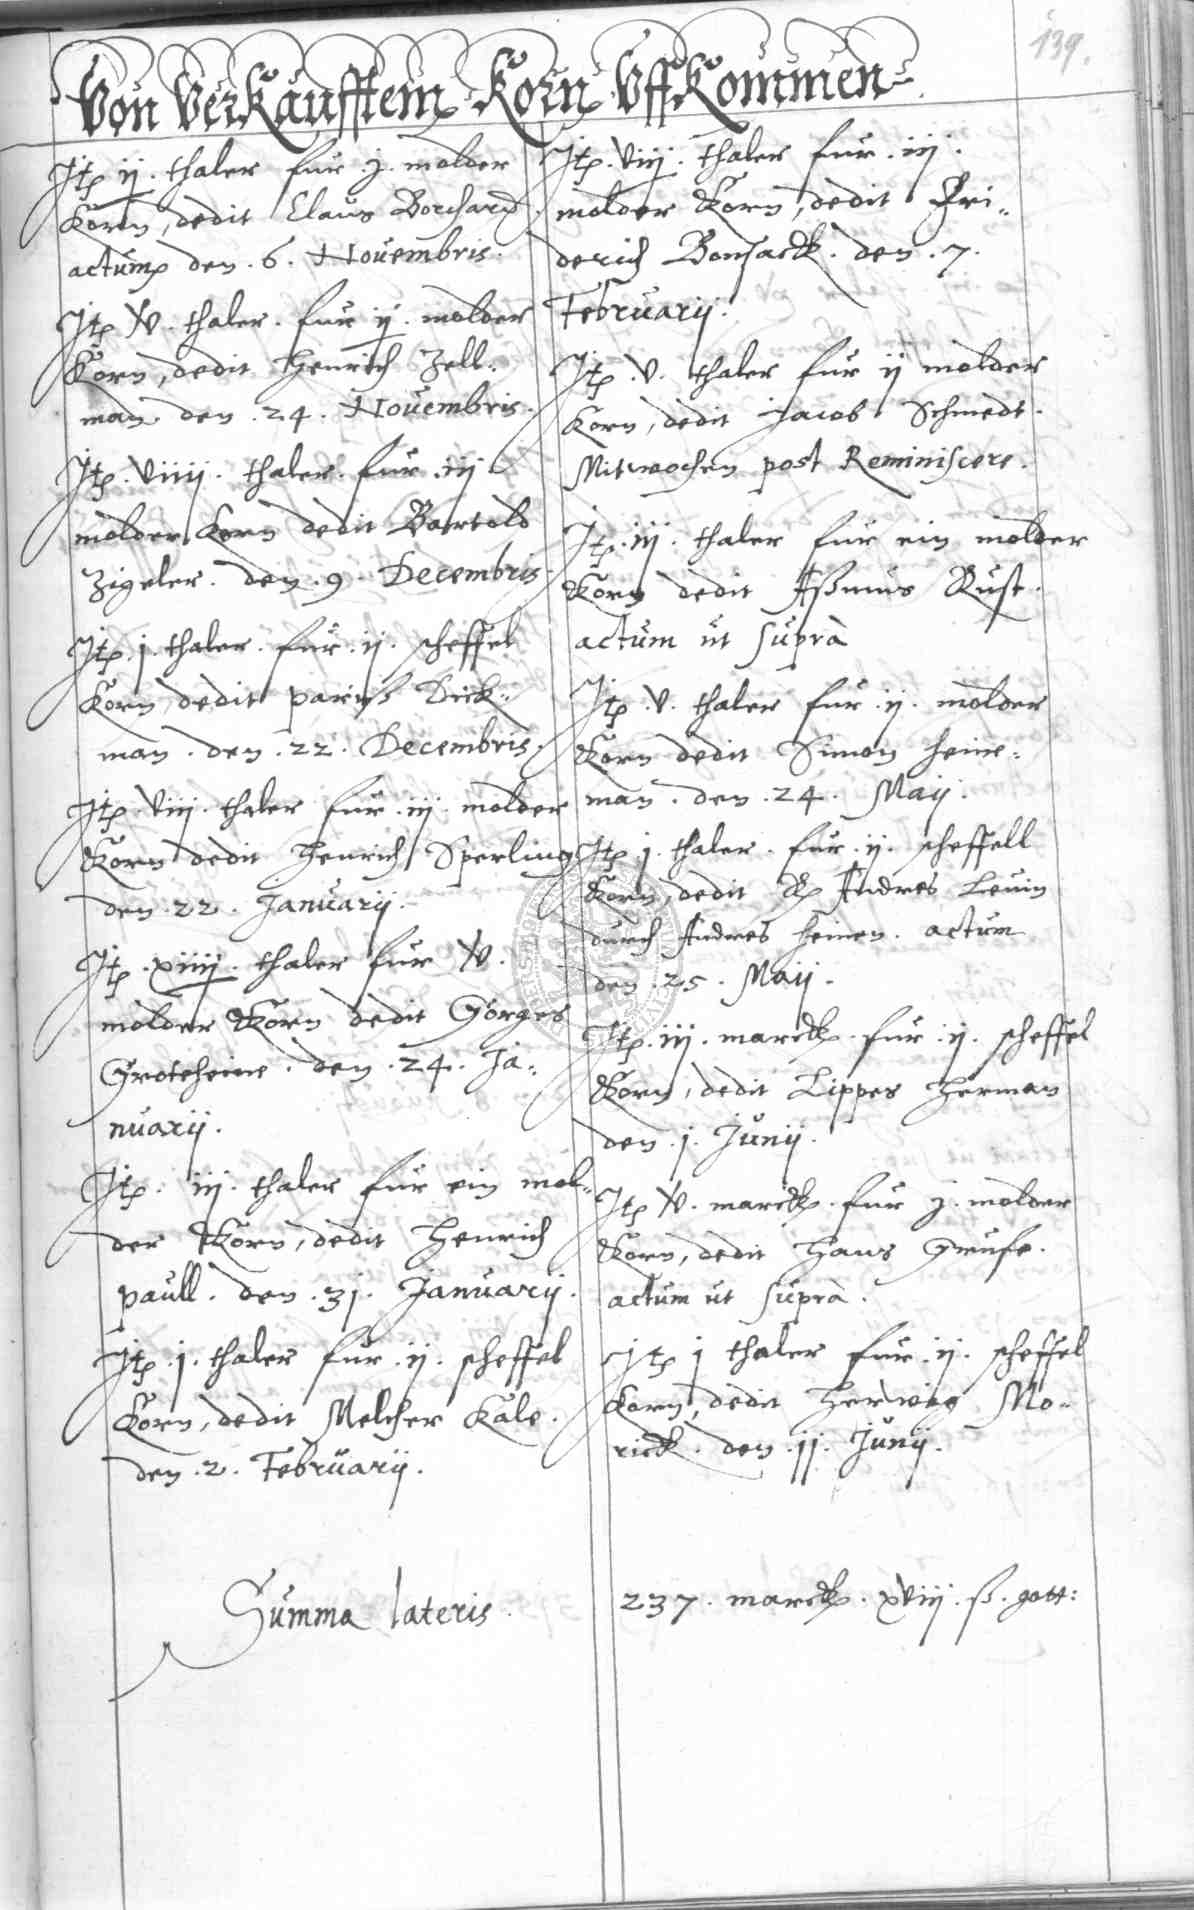 139.
Von Verkaufftem Korn Uffkommen
Itp ij. thaler fur .j. molder
Korn, dedit Claus Borchard
actum den .6. Novembris.
Itp V. thaler. fur ij. molder
Korn, dedit Henrich Zell=
man den .24. Novembris.
Itp. Viiij. thaler. fur .iij
molder Korn dedit Bartold
Zigeler. den .9. Decembris
Itp .j. thaler. fur .ij. scheffel
Korn, dedit Dick=
man. den .22. Decembris.
Itp Viij. thaler fur .iij. molder
Korn dedit Henrich Sperling
den .22. Januarij.
Itp .xiiij. thaler fur V.
molder Korn dedit Görges
Groteheine. den .24. Ja=
nuarij.
Itp. iij. thaler fur ein mol=
der Korn, dedit Henrich
paull. den .31. Januarij.
Itp .j. thaler fur .ij. scheffel
Korn, dedit Melcher Kale.
den .2. Februarij.
Itp. Viij. thaler fur .iij.
molder Korn, dedit Fri=
derich Bonsack. den .7.
Februarij.
Itp .V. thaler fur ij molder
Korn, dedit Jacob Schmedt.
Mitwochen post Reminiscere.
Itp .iij. thaler fur ein molder
Korn dedit Aßmus Rust.
actum ut supra
Itp .V. thaler fur .ij. molder
Korn dedit Simon Heine=
man. den .24. Maij.
Itp .j. thaler. fur .ij. scheffell
Korn, dedit Andres Levin
durch Andres Heinen. actum
den .25. Maij.
Itp .iij. marck. fur .ij. scheffel
Korn, dedit Lippes Herman
den .j. Junij.
Itp V. marck. fur j. molder
Korn, dedit Hans Grufe.
actum ut supra.
Itp j thaler fur .ij. scheffel
Korn, dedit Herwig Mo=
rick. den .jj. Junij.
Summa lateris. 237. marck. xViij. ß. gott: